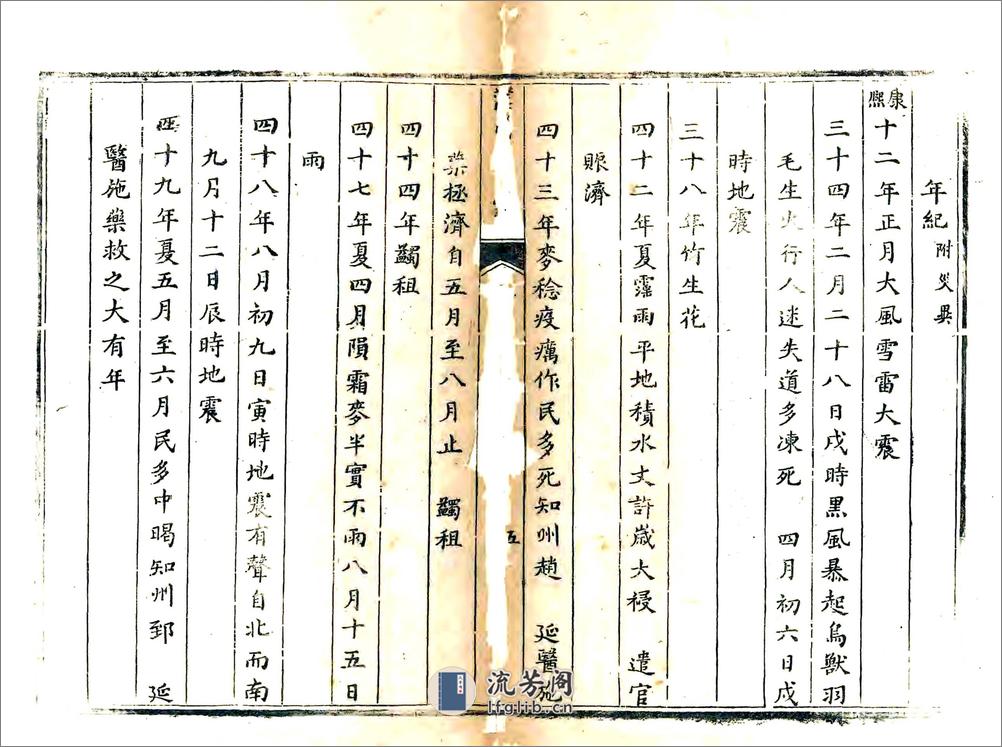 年紀附災異
康熙十二年正月大風雪雷大震
三十四年二月二十八日戌時黒風暴起鳥獸羽
毛生火行人迷失道多凍死 四月初六日戌
時地震
三十八年竹生花
四十二年夏霪雨平地積水丈許嵗大祲 遣官
賑濟
四十三年麥稔疫癘作民多死知州趙 延醫施
五
藥拯濟自五月至八月止 蠲租
四十四年蠲租
四十七年夏四月隕霜麥半實不雨八月十五日
雨
四十八年八月初九日寅時地震有聲自北而南
九月十二日辰時地震
四十九年夏五月至六月民多中暍知州郅 延
醫施藥救之大有年
流芳阁
lfglib.cn